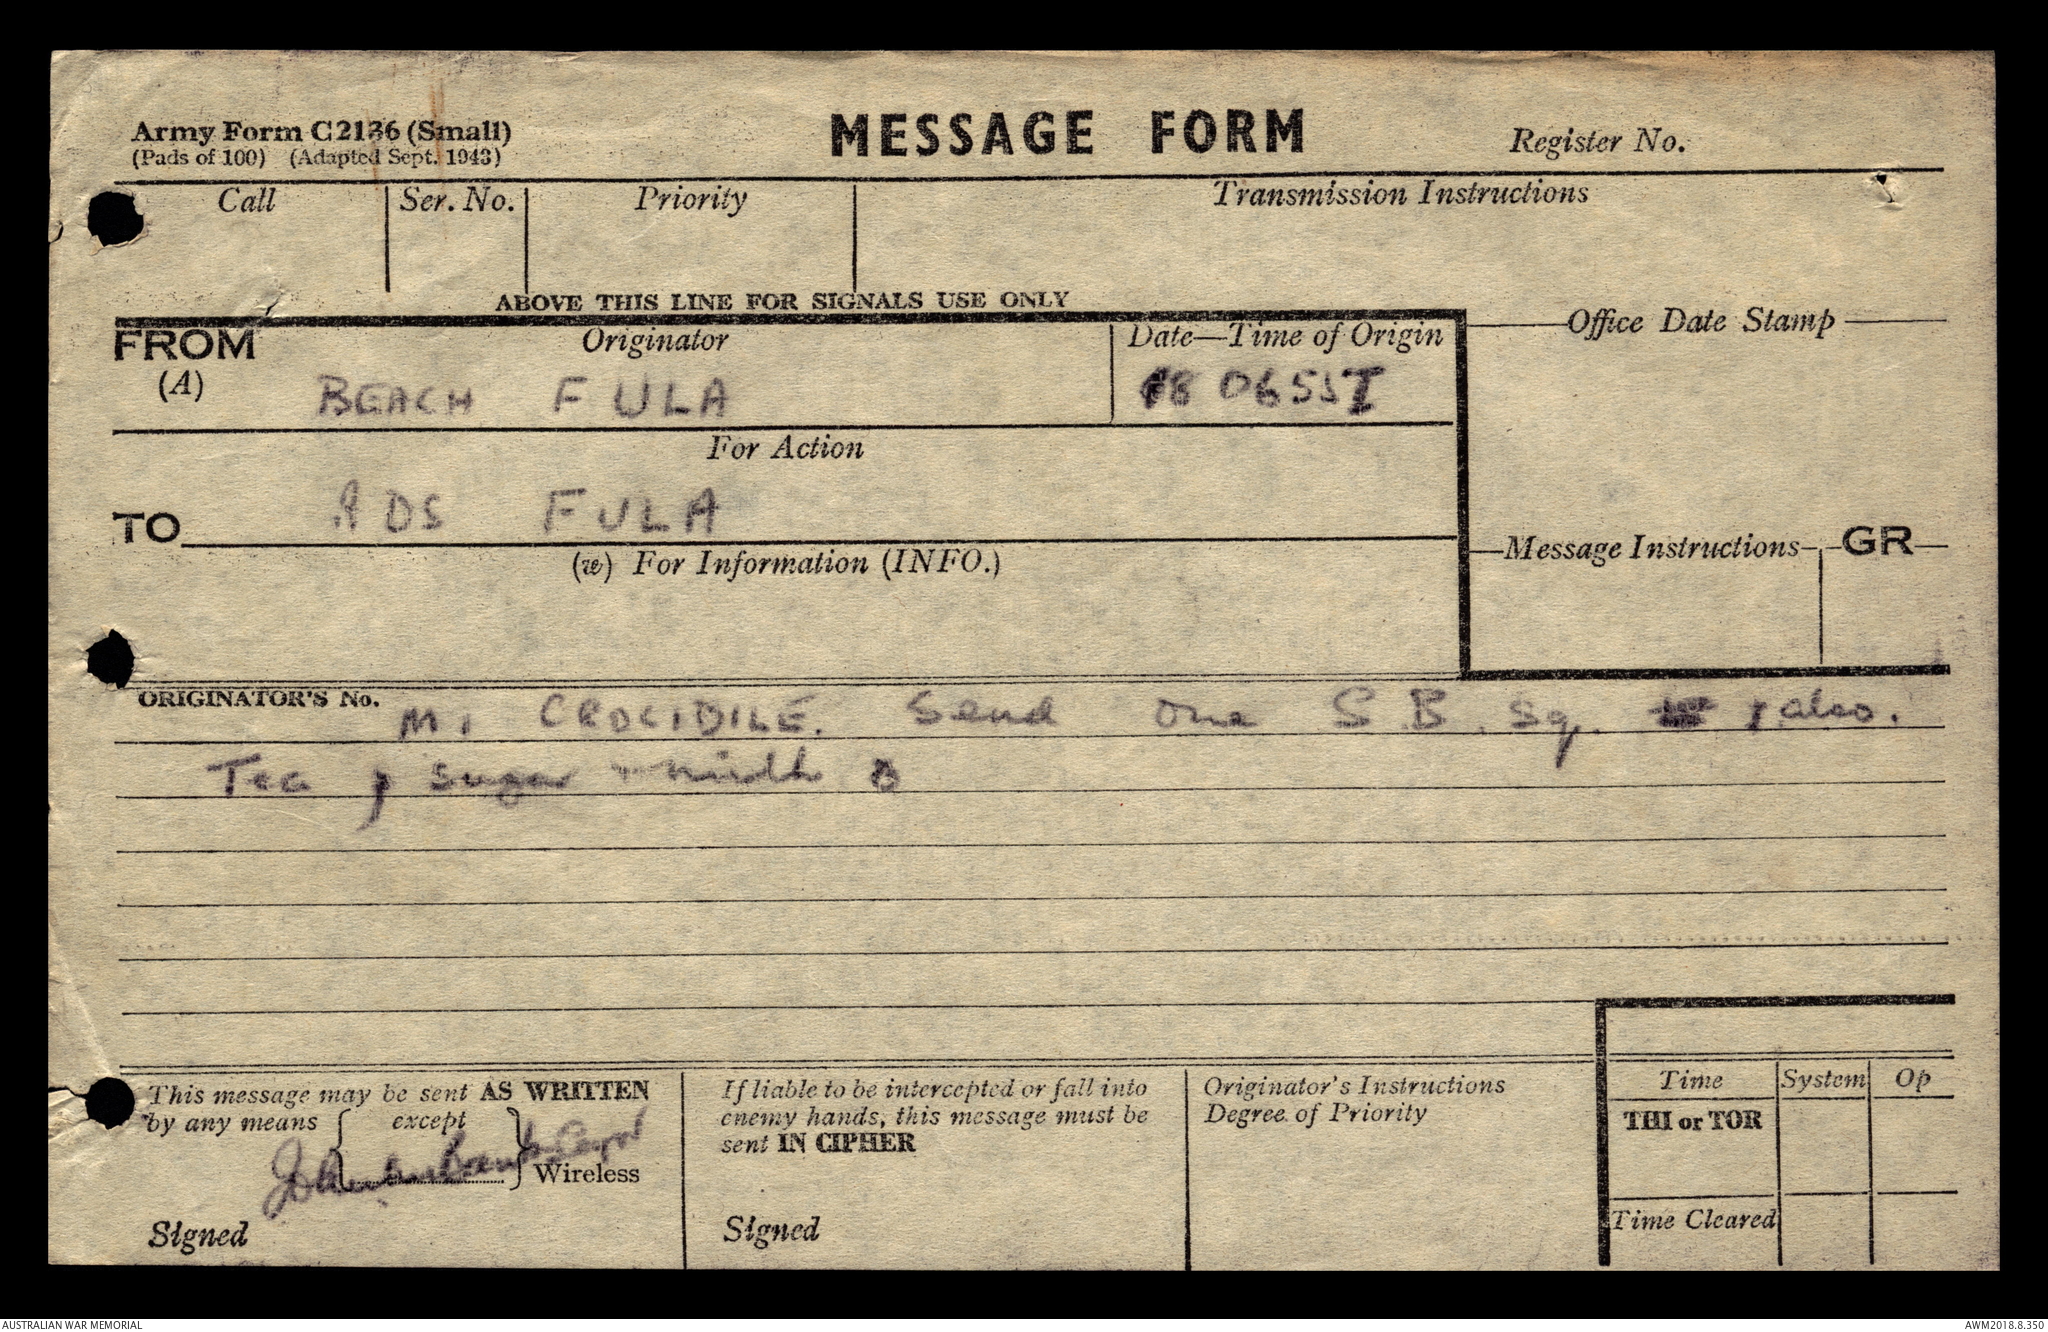 Army Form C2136 (Small)
(Pads of 100) (Adapted Sept. 1943)
MESSAGE FORM
Register No.
Call
Ser. No.
Priority
Transmission Instructions
ABOVE THIS LINE FOR SIGNALS USE ONLY
FROM
(A)
Originator
BEACH FULA
Date—Time of Origin
18 0655I
Office Date Stamp
For Action
TO
ADS FULA
(w) For Information (INFO.)
Message Instructions
GR
ORIGINATOR'S No.
M1 CROCIDILE. Send one S.B. Sq. also.
Tea, sugar + milk
This message may be sent AS WRITTEN
by any means except
Wireless
Signed
If liable to be intercepted or fall into
enemy hands, this message must be
sent IN CIPHER
Signed
Originator's Instructions
Degree of Priority
Time
System
Op
THI or TOR
Time Cleared
AUSTRALIAN WAR MEMORIAL
AWM2018.8.350